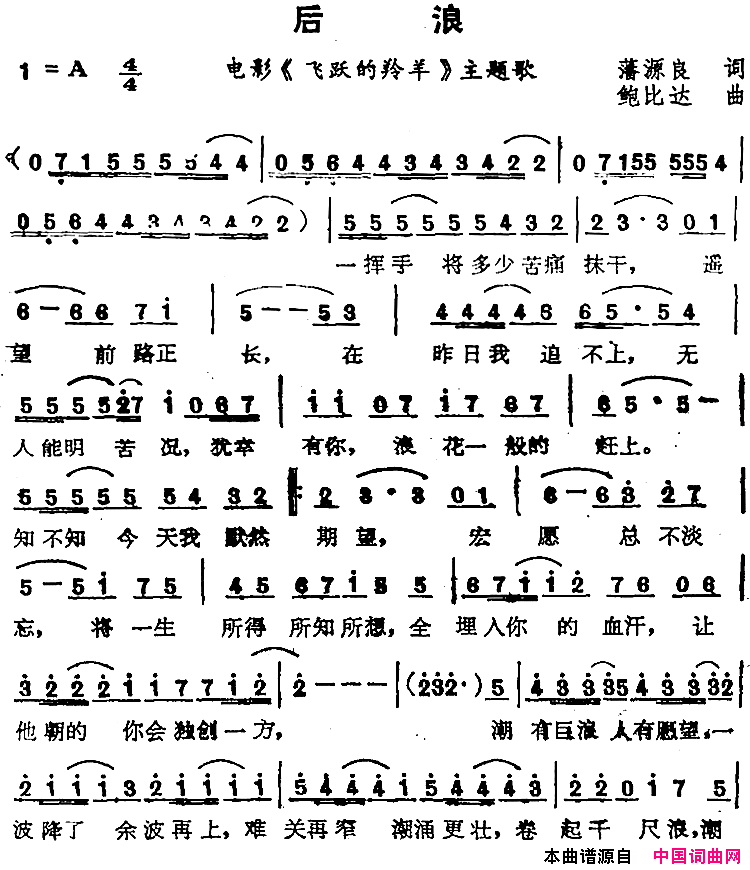 后 浪
1 = A 4/4 电影《飞跃的羚羊》主题歌 藩源良 词
鲍比达 曲
一挥手 将多少苦痛 抹干， 遥
望 前 路正 长， 在 昨日我 追 不上， 无
人能明 苦 况，犹幸 有你， 浪 花一 般的 赶上。
知不知 今 天我 默然 期望， 宏 愿 总 不淡
忘， 将 一生 所得 所知所想，全 埋入你 的 血汗， 让
他 朝的 你会 独创一 方， 潮 有巨浪 人有愿望。一
波降了 余波再上，难 关再窄 潮涌更壮，卷 起千 尺浪，潮
本曲谱源自 中国词曲网